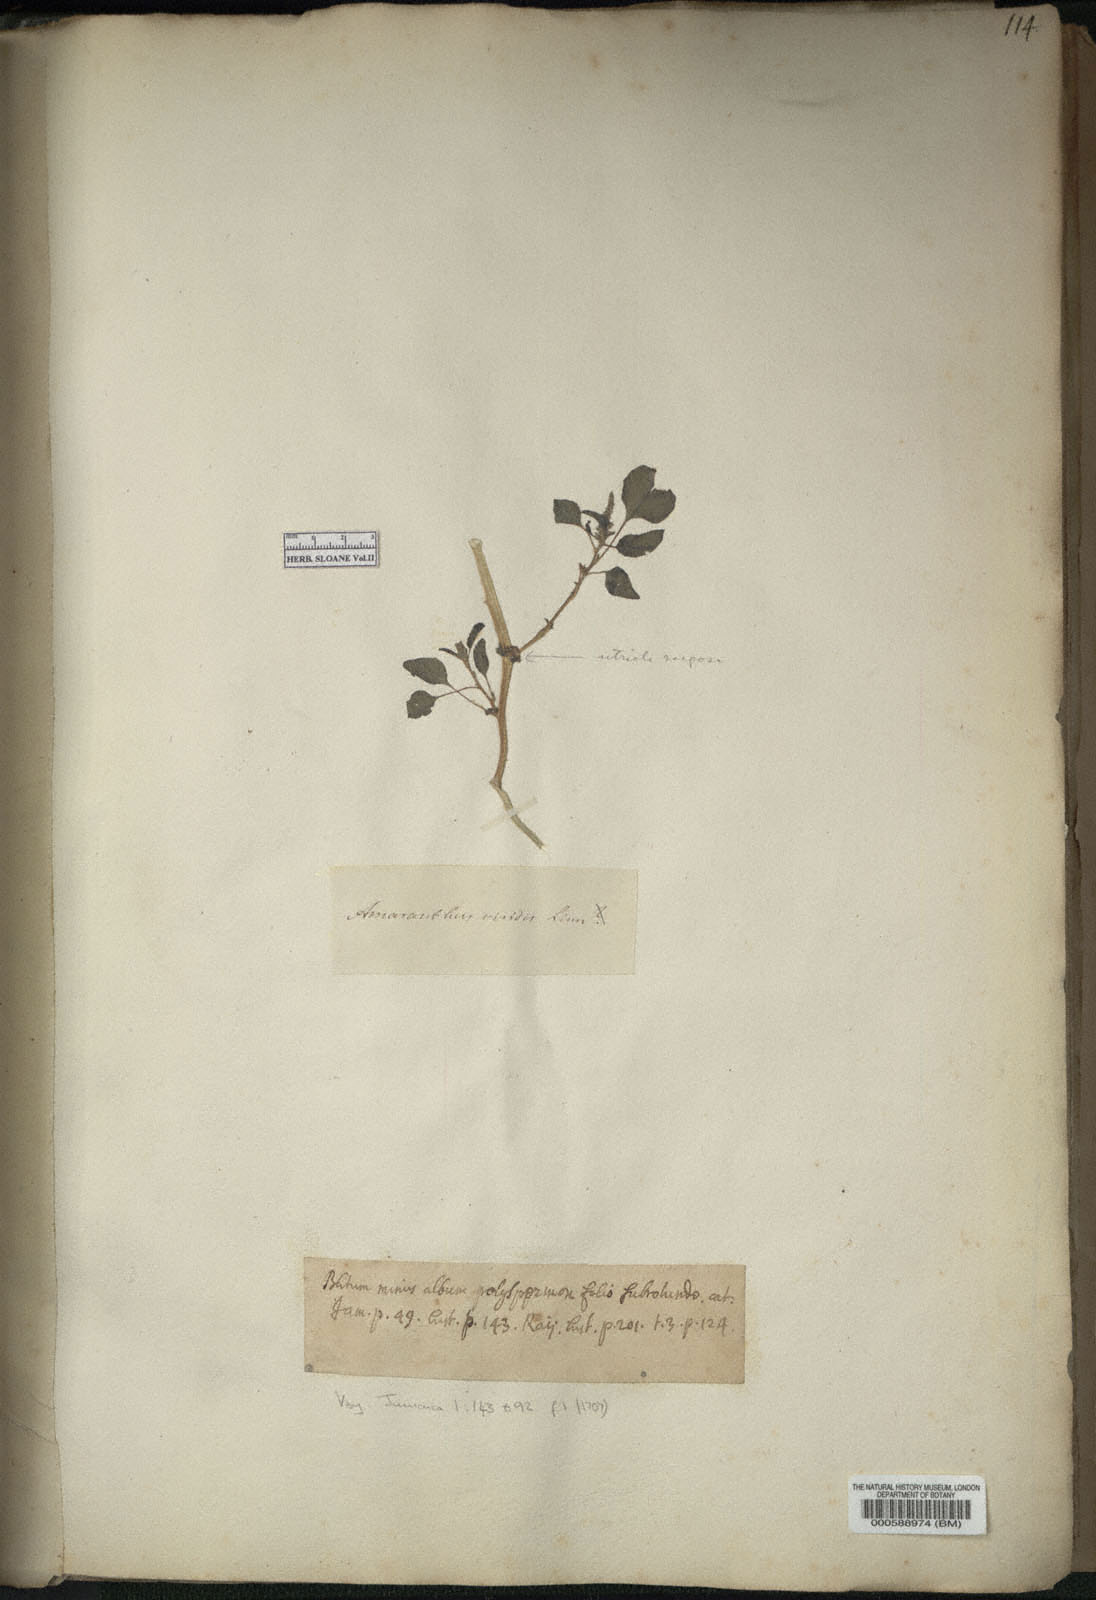 114
mm 1 2 3
HERB. SLOANE Vol.II
utricle rugose
Amaranthus viridis Linn
Blitum minus album polyspermon folio subrotundo. cat:
Jam. p. 49. hist. p. 143. Raij. hist. p. 201. t.3. p. 124.
Voy. Jamaica 1: 143 t 92 (1707)
THE NATURAL HISTORY MUSEUM, LONDON
DEPARTMENT OF BOTANY
000588974 (BM)